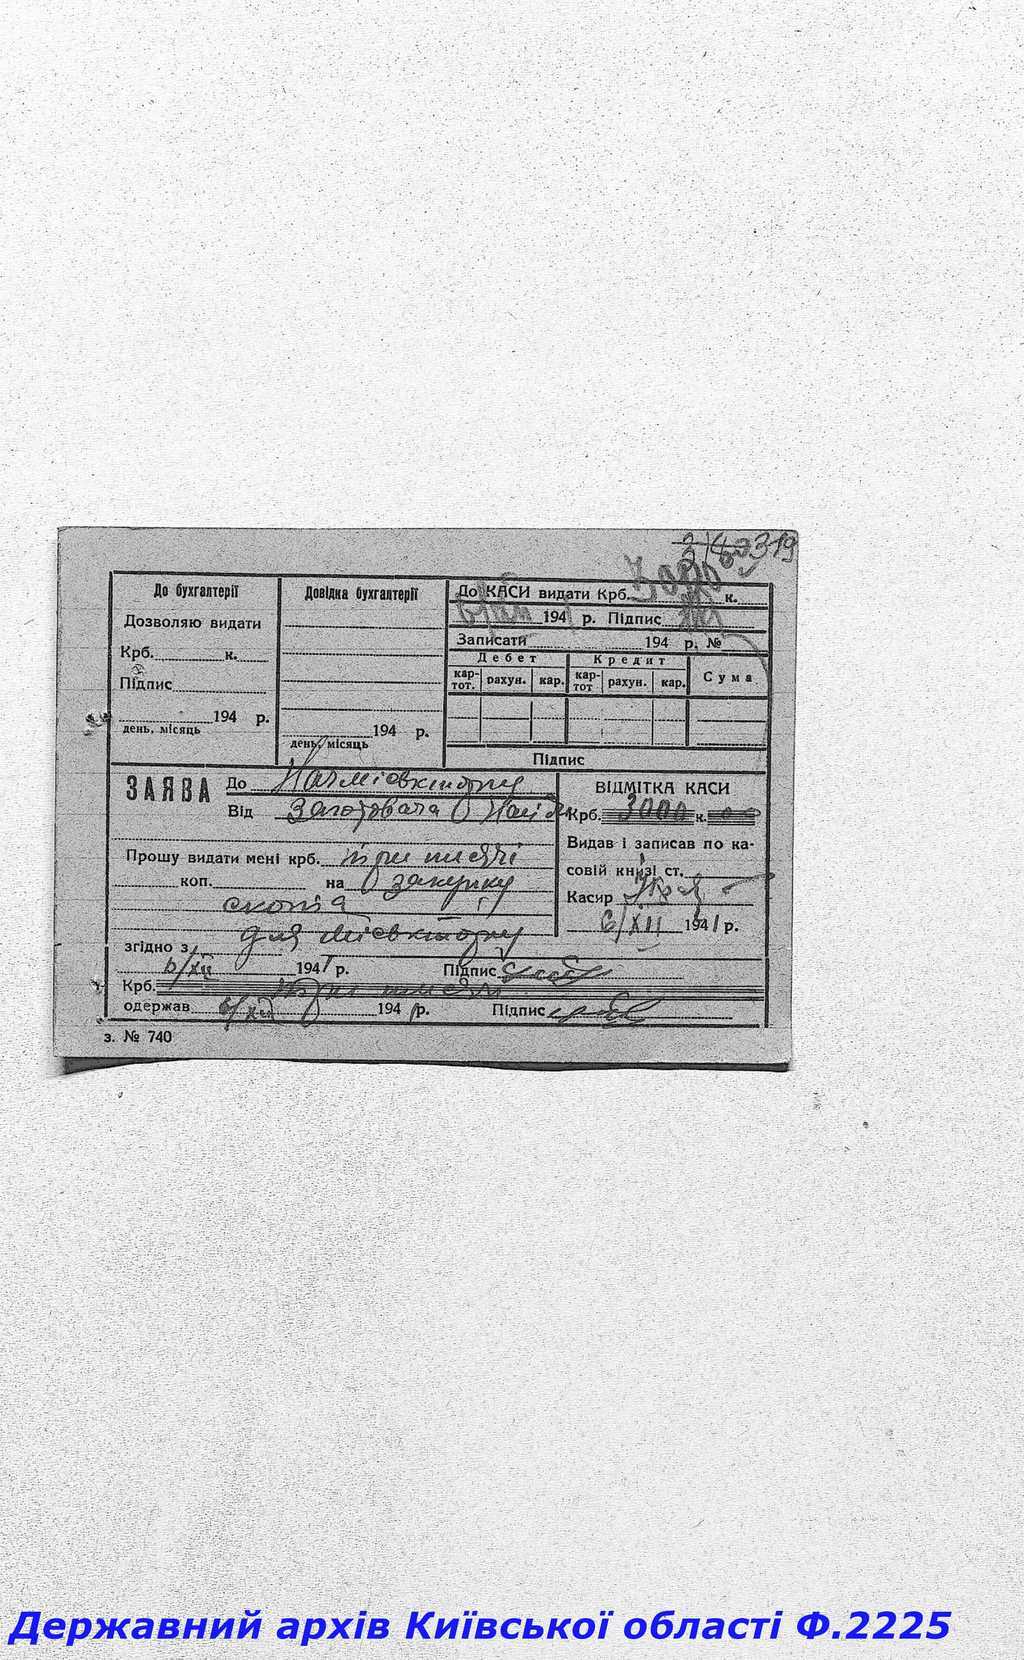 319
До бухгалтерії
Дозволяю видати
Крб. к.
Підпис
194 р.
день, місяць
Довідка бухгалтерії
194 р.
день, місяць
До КАСИ видати Крб. 3000 к.
6/XII 1941 р. Підпис
Записати 194 р. №
Дебет Кредит Сума
кар-тот. рахун. кар. кар-тот рахун. кар.
Підпис
ЗАЯВА До
Від Заготовача
Прошу видати мені крб. три тисячі
коп. на закупку
скота
для
згідно з
6/XII 1941 р. Підпис
Крб. три тисячі
одержав 6/XII 1941 р. Підпис
ВІДМІТКА КАСИ
Крб. 3000 к. 00
Видав і записав по ка-
совій книзі ст.
Касир
6/XII 1941 р.
з. № 740
Державний архів Київської області Ф.2225